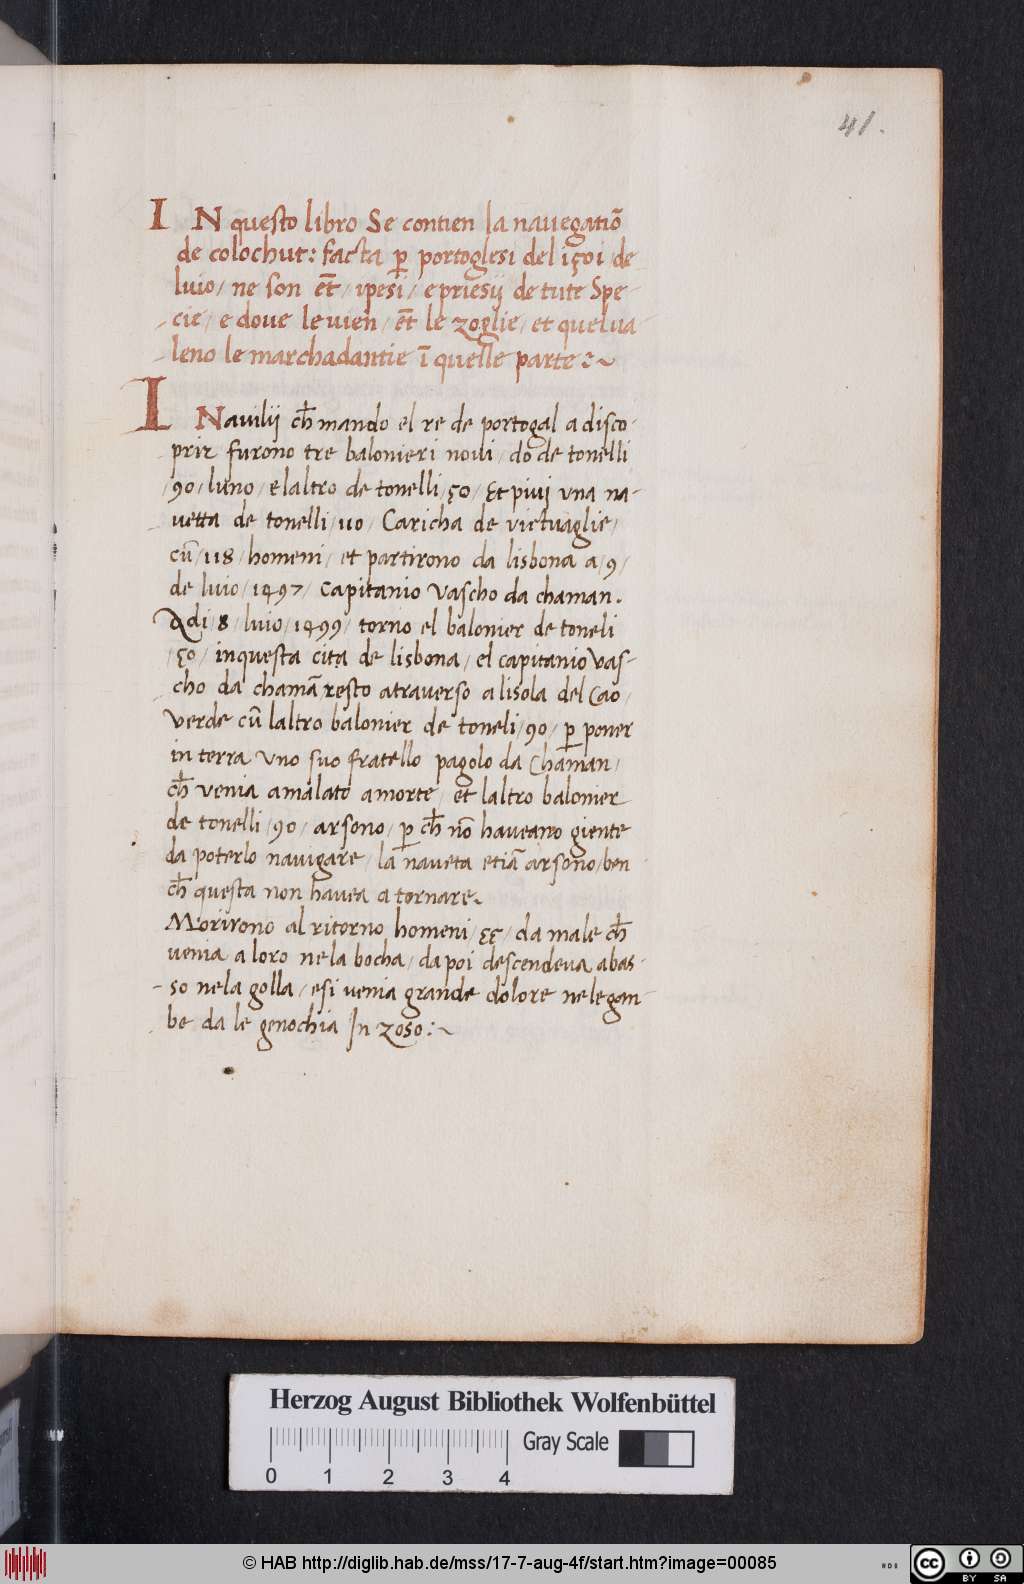 41.
IN questo libro Se contien la nauegatiõ
de colochut: facta p̱ portoglesi del 1501 de
luio / ne son et̃ / ipesi / e priesij de tute Spe-
cie / e doue le uien / et̃ le zoglie / et quel ua-
leno le marchadantie ĩ quelle parte :~
I Nauilij ch̃ mando el re de portogal a disco-
prir furono tre balonieri noui / do de tonelli
/ 90 / luno / e laltro de tonelli / 50 / Et piuj vna na-
uetta de tonelli / 110 / Caricha de victuaglie /
cũ / 118 / homeni / et partirono da lisbona a / 9 /
de luio / 1497 / Capitanio Vascho da chaman.
Adi / 8 / luio / 1499 / torno el balonier de toneli
/ 50 / in questa cita de lisbona / el capitanio Vas-
cho da chamã resto atrauerso a lisola del Cao /
Verde cũ laltro balonier de toneli / 90 / p̱ poner
in terra vno suo fratello pagolo da Chaman /
ch̃ venia amalato a morte / et laltro balonier
de tonelli / 90 / arsono / p̱ ch̃ nõ haueano giente
da poterlo nauigare / la naueta etiã arsono / ben
ch̃ questa non hauea a tornare.
Morirono al ritorno homeni / 55 / da male ch̃
uenia a loro ne la bocha / da poi descendeua abas-
so ne la golla / e si uenia grande dolore ne le gan-
be da le genochia In zoso :~
Herzog August Bibliothek Wolfenbüttel
Gray Scale
0 1 2 3 4
© HAB http://diglib.hab.de/mss/17-7-aug-4f/start.htm?image=00085
cc BY SA